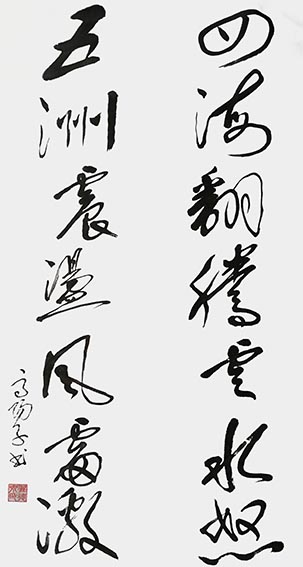 四海翻腾云水怒
五洲震盪风雷激
高阳子书